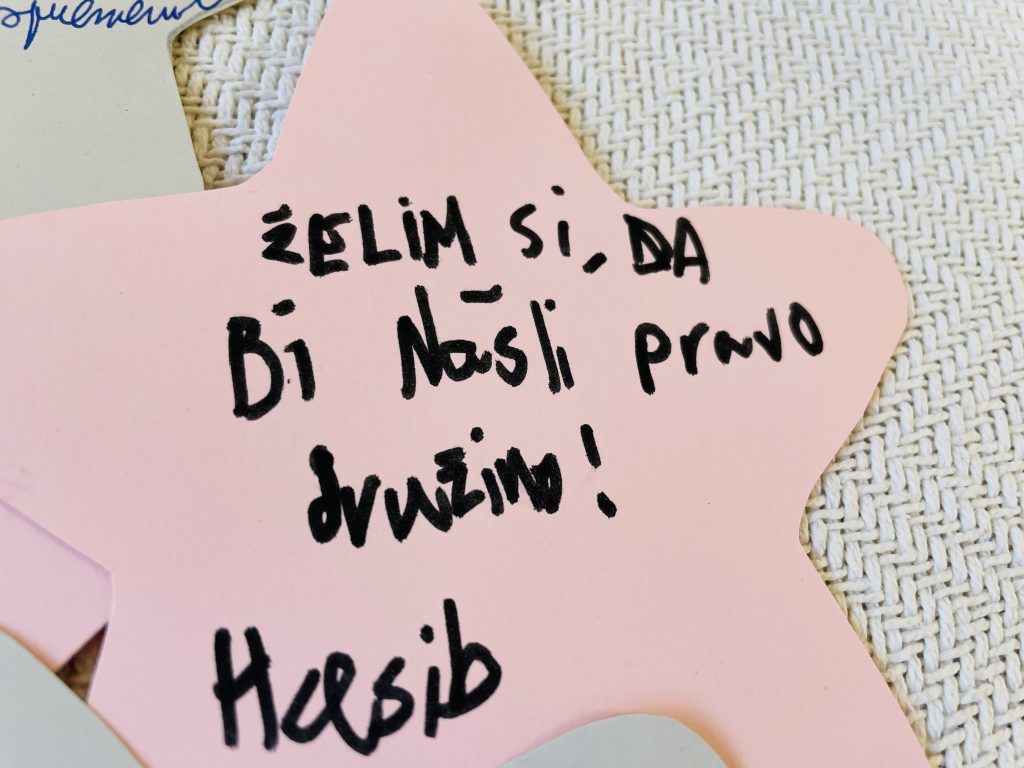 spremeni
ŽELiM Si, DA
Bi Našli pravo
družino!
Hasib